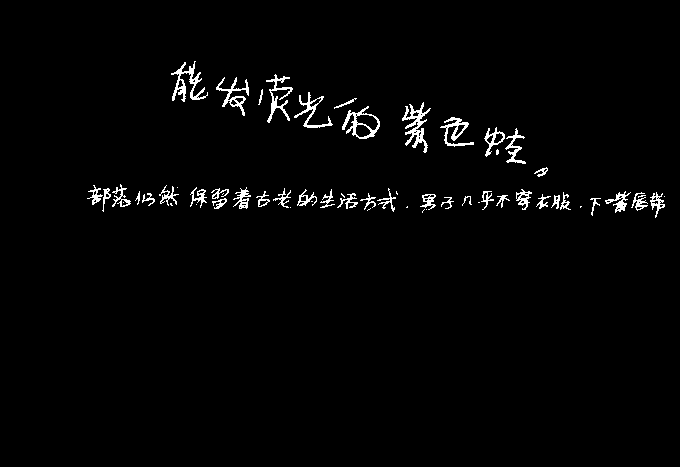 能发荧光的紫色蛙。
部落仍然保留着古老的生活方式.男子几乎不穿衣服.下嘴唇带